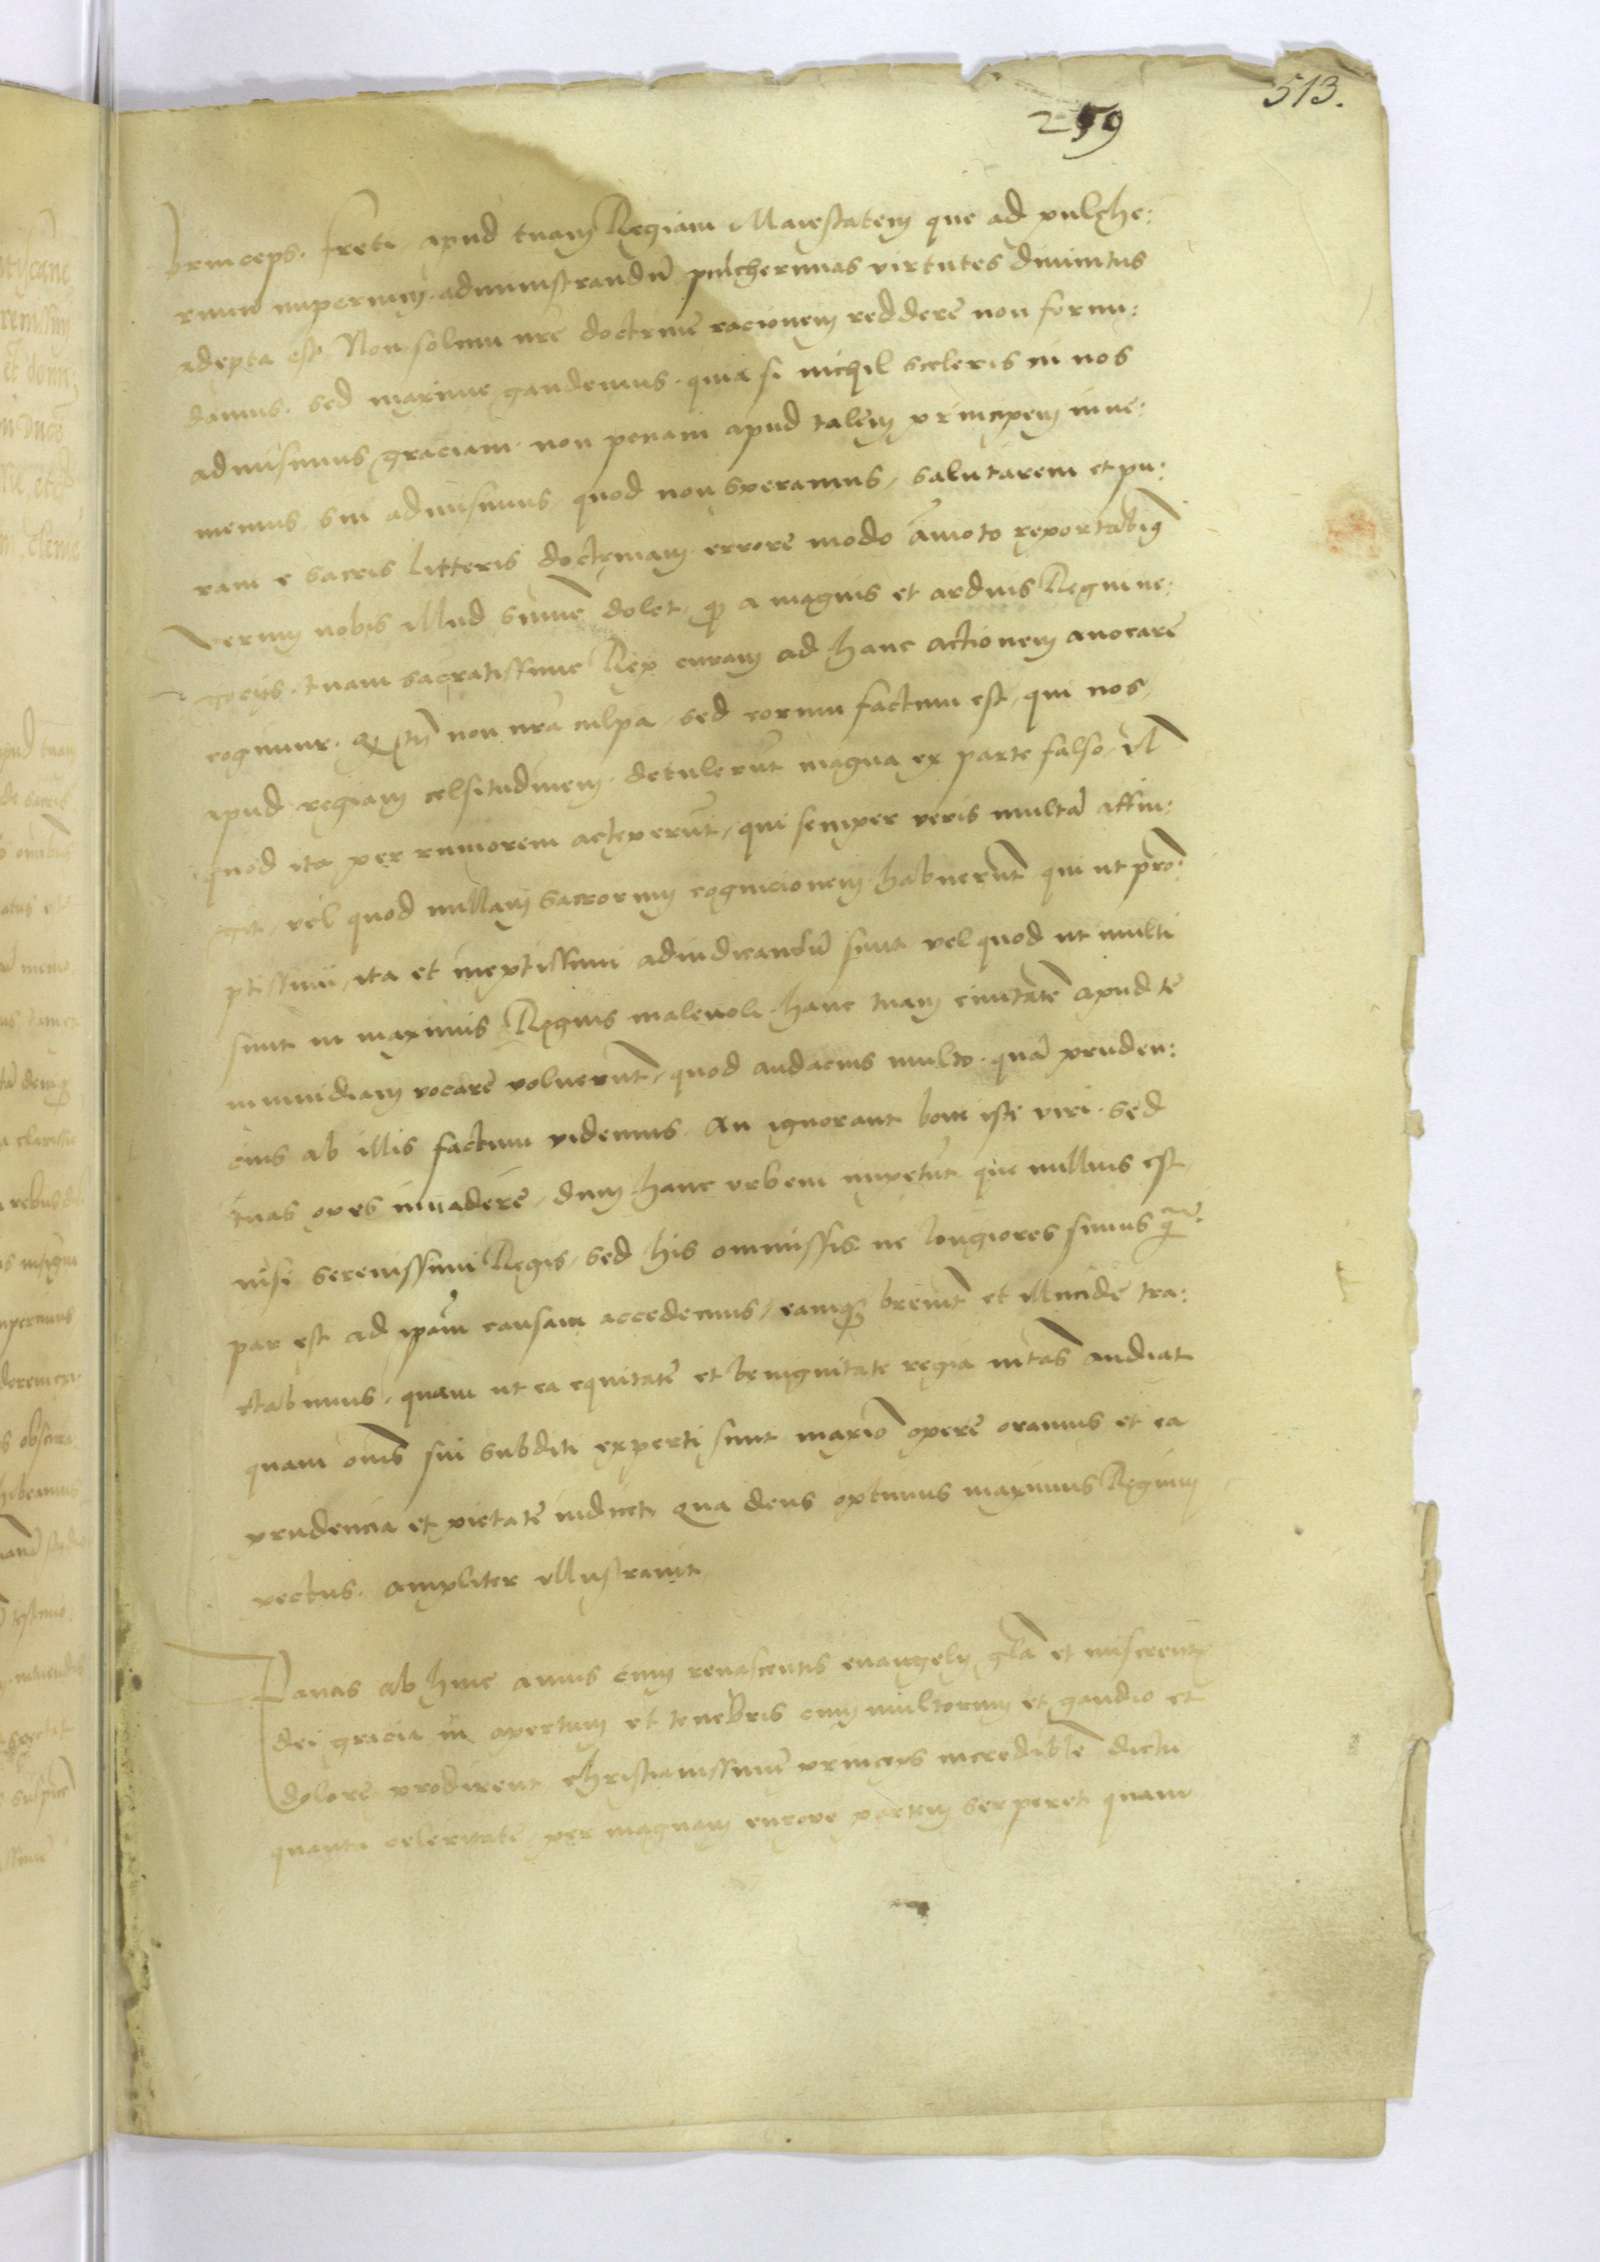 513.
259
princeps. freti apud tuam Regiam Maiestatem que ad pulche:
rimu imperium administrandu pulcherimas virtutes diuinitus
adepta est Non solum nre doctrine racionem reddere non formi:
damus. sed maxime gaudemus. quia si nichil sceleris in nos
admisimus graciam non penam apud talem principem inue:
niemus sin admisimus quod non speramus, salutarem et pu:
ram e sacris litteris doctrinam errore modo amoto reportabim9
Verum nobis illud sume dolet, q a magnis et arduis Regni ne:
gocijs tuam sacratissime Rex curam ad hanc actionem auocare
cogimur. non nra culpa sed eorum factum est, qui nos
apud regiam celsitudinem detulerut magna ex parte falso, Vl
quod ita per rumorem acceperut, qui semper veris multa affin:
git, vel quod nullam sacrorum cognicionem habuerut qui ut pro:
ptissimi, ita et ineptissimi adiudicandu sunt vel quod ut multi
sunt in maximis Regnis maleuoli hanc tuam ciuitate apud te
in inuidiam vocare voluerut, quod audacius multo qua pruden:
cius ab illis factum videmus. An ignorant boni iste viri. sed
tuas opes inuadere, dum hanc urbem impetut que nullius est
nisi serenissimi Regis, sed his ommissis ne longiores simus
par est ad ipam causam accedemus, eamq breuit et illucide tra:
ctabimus, quam ut ea equitate et benignitate regia mtas audiat
quam oms sui subditi experti sunt maxio opere oramus et ea
prudencia et pietate iudicet qua deus optimus maximus Regium
pectus. ampliter illustrauit
Paucis ab hinc annis cum renascentis euangelij gla et
dei gracia in apertum et tenebris cum multorum et gaudio et
dolore prodirent christianissime princeps incredibile dictu
quanta celeritate per magnam europe partem serperet quam